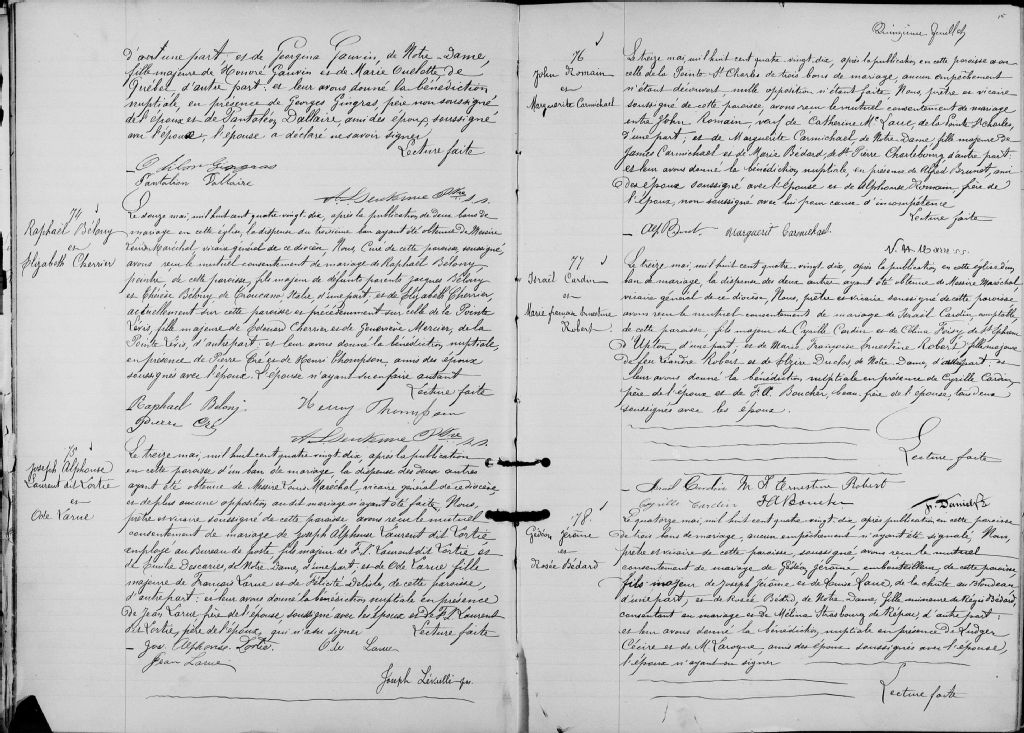 d'une part, et de Georgina Gauvin, de Notre-Dame,
fille majeure de Honoré Gauvin et de Marie Ouellette de
Québel d'autre part, et leur avons donné la bénédiction
nuptiale, en présence de Georges Gingras, père non soussigné
de l'époux et de Pantaléon Dallaire, ami des époux, soussigné
avec l'époux, l'épouse a déclaré ne savoir signer.
Lecture faite
Gingras
Pantaléon Dallaire
Ptre s.s.
74
Raphaël Belony
et
Elizabeth Cherrier
Le douze mai, mil huit cent quatre vingt dix, après la publication de deux bans de
mariage en cette église, la dispense du troisième ban ayant été obtenue de Messire
Louis Maréchal, vicaire général de ce diocèse, Nous, Curé de cette paroisse, soussigné,
avons reçu le mutuel consentement de mariage de Raphaël Belony
peintre, de cette paroisse, fils majeur de défunts parents Jacques Belony
et Belony de Italie d'une part, et de Elizabeth Cherrier,
actuellement sur cette paroisse et précédemment sur celle de la Pointe
Lévis, fille majeure de Edouard Cherrier et de Geneviève Mercier, de la
Pointe Lévis d'autre part, et leur avons donné la bénédiction nuptiale,
en présence de Pierre Cré et de Henri Thompson, amis des époux
soussignés avec l'époux. L'épouse n'ayant su en faire autant
Lecture faite
Raphael Belony Henry Thompson
Pierre Cré
Ptre s.s.
75
Joseph Alphonse
Laurent dit Lortie
et
Ode Larue
Le treize mai, mil huit cent quatre vingt dix, après la publication
en cette paroisse d'un ban de mariage, la dispense des deux autres
ayant été obtenue de Messire Louis Maréchal, vicaire général de ce diocèse,
et de plus aucune opposition au dit mariage n'ayant été faite, Nous,
prêtre et vicaire soussigné de cette paroisse avons reçu le mutuel
consentement de mariage de Joseph Alphonse Laurent dit Lortie
employé au Bureau de poste, fils majeur de F.X. Laurent dit Lortie et
de Emilie Descaries, de Notre Dame, d'une part, et de Ode Larue fille
majeure de François Larue et de Félicité Delisle, de cette paroisse,
d'autre part; et leur avons donné la bénédiction nuptiale en présence
de Jean Larue père de l'épouse, soussigné avec les époux et de F.X. Laurent
dit Lortie, père de l'époux, qui n'a su signer Lecture faite
Jos. Alphonse Lortie. Ode Larue
Jean Larue
Joseph Léveillé ptr.
15
Quinzième feuillet
76
John Romain
et
Marguerite Carmichael
Le treize mai, mil huit cent quatre vingt dix, après la publication, en cette paroisse et en
celle de la Pointe St Charles de trois bans de mariage, aucun empêchement
n'étant découvert, nulle opposition n'étant faite. Nous, prêtre et vicaire
soussigné de cette paroisse, avons reçu le mutuel consentement de mariage
entre John Romain, veuf de Catherine de la Pointe St Charles,
d'une part; et de Marguerite Carmichael de Notre Dame, fille majeure de
James Carmichael et de Marie Bédard, de St Pierre Charlesbourg d'autre part:
et leur avons donné la bénédiction nuptiale, en présence de Alfred Brunet, ami
des époux soussigné avec l'épouse et de Alphonse Romain, frère de
l'époux, non soussigné avec lui pour cause d'incompétence
Lecture faite
Alf Brunet Marguerit Carmichael.
77
Israël Cardin
et
Marie françoise Ernestine
Robert
Le treize mai, mil huit cent quatre vingt dix, après la publication, en cette église d'un
ban de mariage, la dispense des deux autres ayant été obtenue de Messire Maréchal,
vicaire général de ce diocèse, Nous, prêtre et vicaire soussigné de cette paroisse
avons reçu le mutuel consentement de mariage de Israël Cardin, comptable
de cette paroisse, fils majeur de Cyrille Cardin et de Célina Foisy de St Ephrem
d'Upton, d'une part, et de Marie Françoise Ernestine Robert, fille majeure
de feu Léandre Robert et de Elzire Duclos, de Notre Dame, d'autre part, et
leur avons donné la bénédiction nuptiale en présence de Cyrille Cardin,
père de l'époux et de F.A. Boucher, beau-frère de l'épouse, tous deux
soussignés avec les époux.
Lecture faite
Israel Cardin M. F. Ernestine Robert
Cyrille Cardin F A Boucher
78.
Gédéon Jérôme
et
Rosée Bédard
Le quatorze mai, mil huit cent quatre vingt dix, après publication en cette paroisse
de trois bans de mariage, aucun empêchement n'ayant été signalé, Nous,
prêtre et vicaire de cette paroisse, soussigné avons reçu le mutuel
consentement de mariage de Gédéon Jérôme embouteilleur, de cette paroisse
fils majeur de Joseph Jérôme et de Louise Lane, de la chute au Blondeau,
d'une part, et de Rosée Bédard de Notre Dame, fille mineure de Régis Bédard,
consentant au mariage et de Mélina Strasbourg de Repas, d'autre part:
et leur avons donné la bénédiction nuptiale en présence de Ludger
Cécire et de M. Larogne amis des époux soussignés avec l'époux,
l'épouse n'ayant su signer
Lecture faite